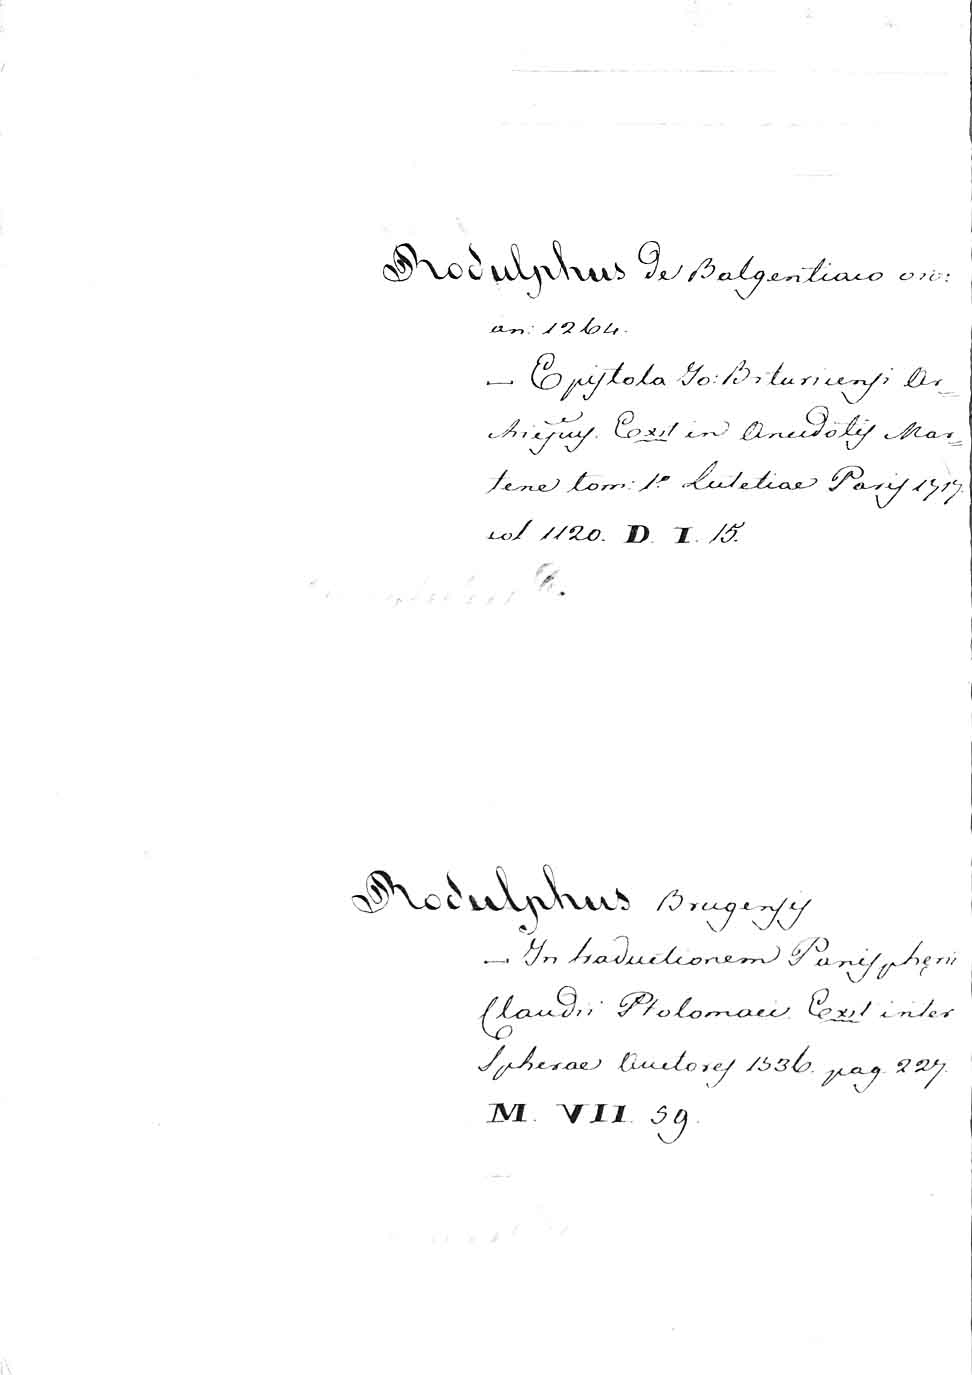 Rodulphus De Balgentiaco
an: 1264.
— Epistola Jo: Bituricensi Ar=
chiepũs. Exit in Anecdotis Mar=
tene tom: 1º Lutetiae Paris 1717.
col 1120. D. I. 15.
Rodulphus Brugensis
— In traductionem Panisphęrii
Claudii Ptolomaei. Exit inter
Spherae Auctores 1536. pag. 227.
M. VII. 59.